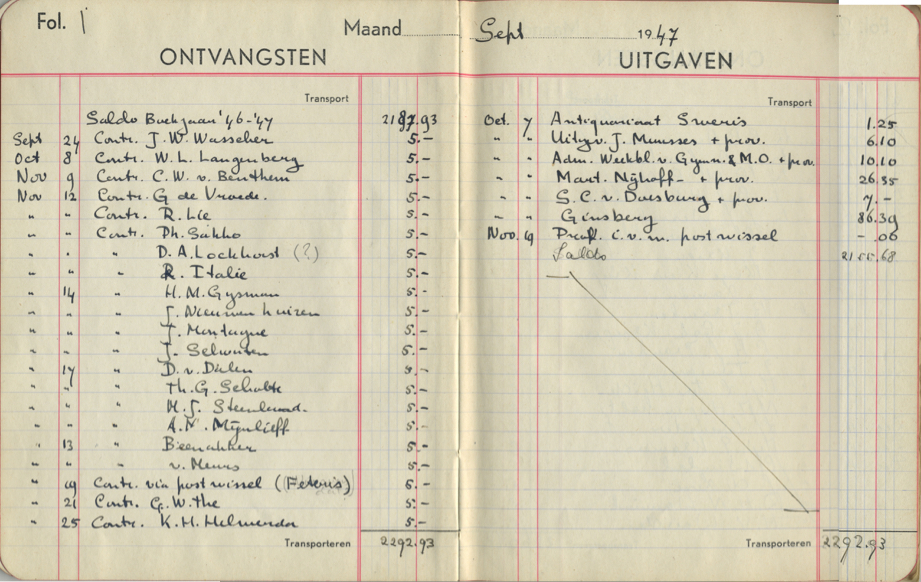 Fol. 1
Maand
ONTVANGSTEN
Transport
Saldo Boekjaar '46-'47 2187.93
Sept 24 Contr. J.W. Wasscher 5.-
Oct 8 Contr. W.L. Langenberg 5.-
Nov 9 Contr. C.W. v. Benthem 5.-
Nov 12 Contr. G de Vroede. 5.-
" " Contr. R. Lie 5.-
" " Contr. Ph. Sakko 5.-
" " " D.A. Lockhorst (?) 5.-
" " " R. Italie 5.-
" 14 " H.M. Gysman 5.-
" " " J. Nieuwenhuizen 5.-
" " " J. Montagne 5.-
" " " J. 5.-
" 17 " D. v. Dalen 5.-
" " " Th.G. Schulte 5.-
" " " H.J. 5.-
" " " A.N. Mijnlieff 5.-
" 13 " Beenakker 5.-
" " " v. Meurs 5.-
" 19 Contr. via postwissel (Feteris) 5.-
" 21 Contr. G.W. The 5.-
" 25 Contr. K.H. 5.-
Transporteren 2292.93
Sept 1947
UITGAVEN
Transport
Oct. 7 Antiquariaat 1.25
" " Uitg. v. J. Muusses + prov. 6.10
" " Adm. Weekbl. v. Gymn. & M.O. + prov. 10.10
" " Mart. Nijhoff - + prov. 26.35
" " S.C. v. Doesburg + prov. 7.-
" " Ginsberg 86.39
Nov. 19 i.v.m. postwissel -.06
Saldo 2155.68
Transporteren 2292.93